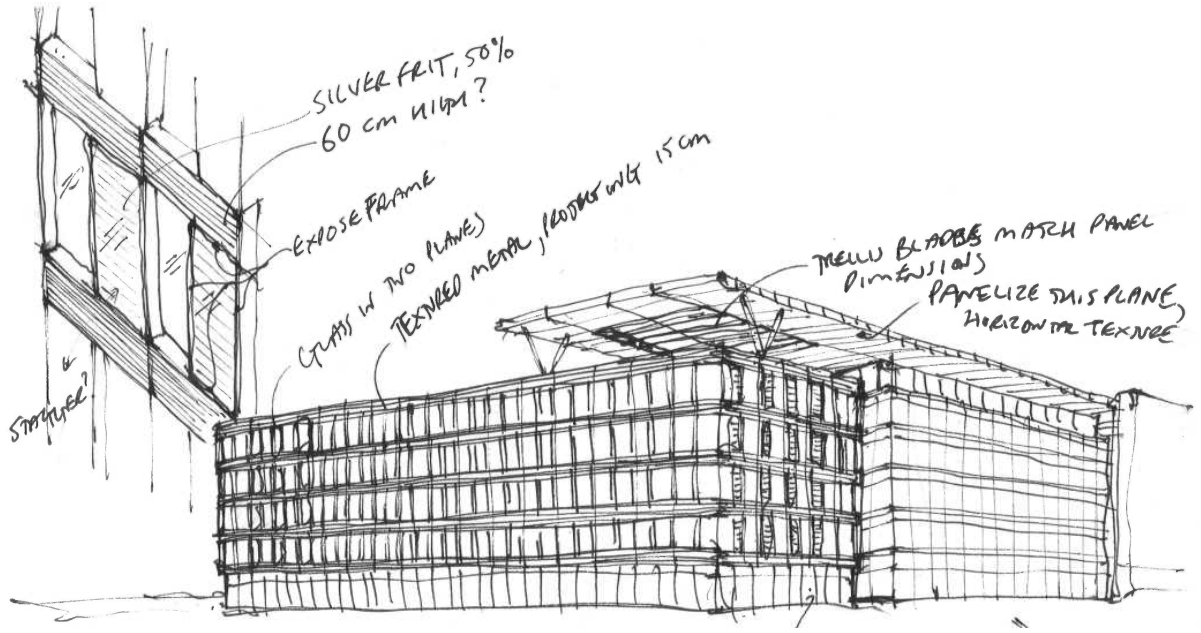 SILVER FRIT, 50%
60 cm HIGH?
EXPOSE FRAME
GLASS IN TWO PLANES
TEXTURED METAL, PROJECTING 15 cm
TRELLIS BLADES MATCH PANEL
DIMENSIONS
PANELIZE THIS PLANE,
HORIZONTAL TEXTURE